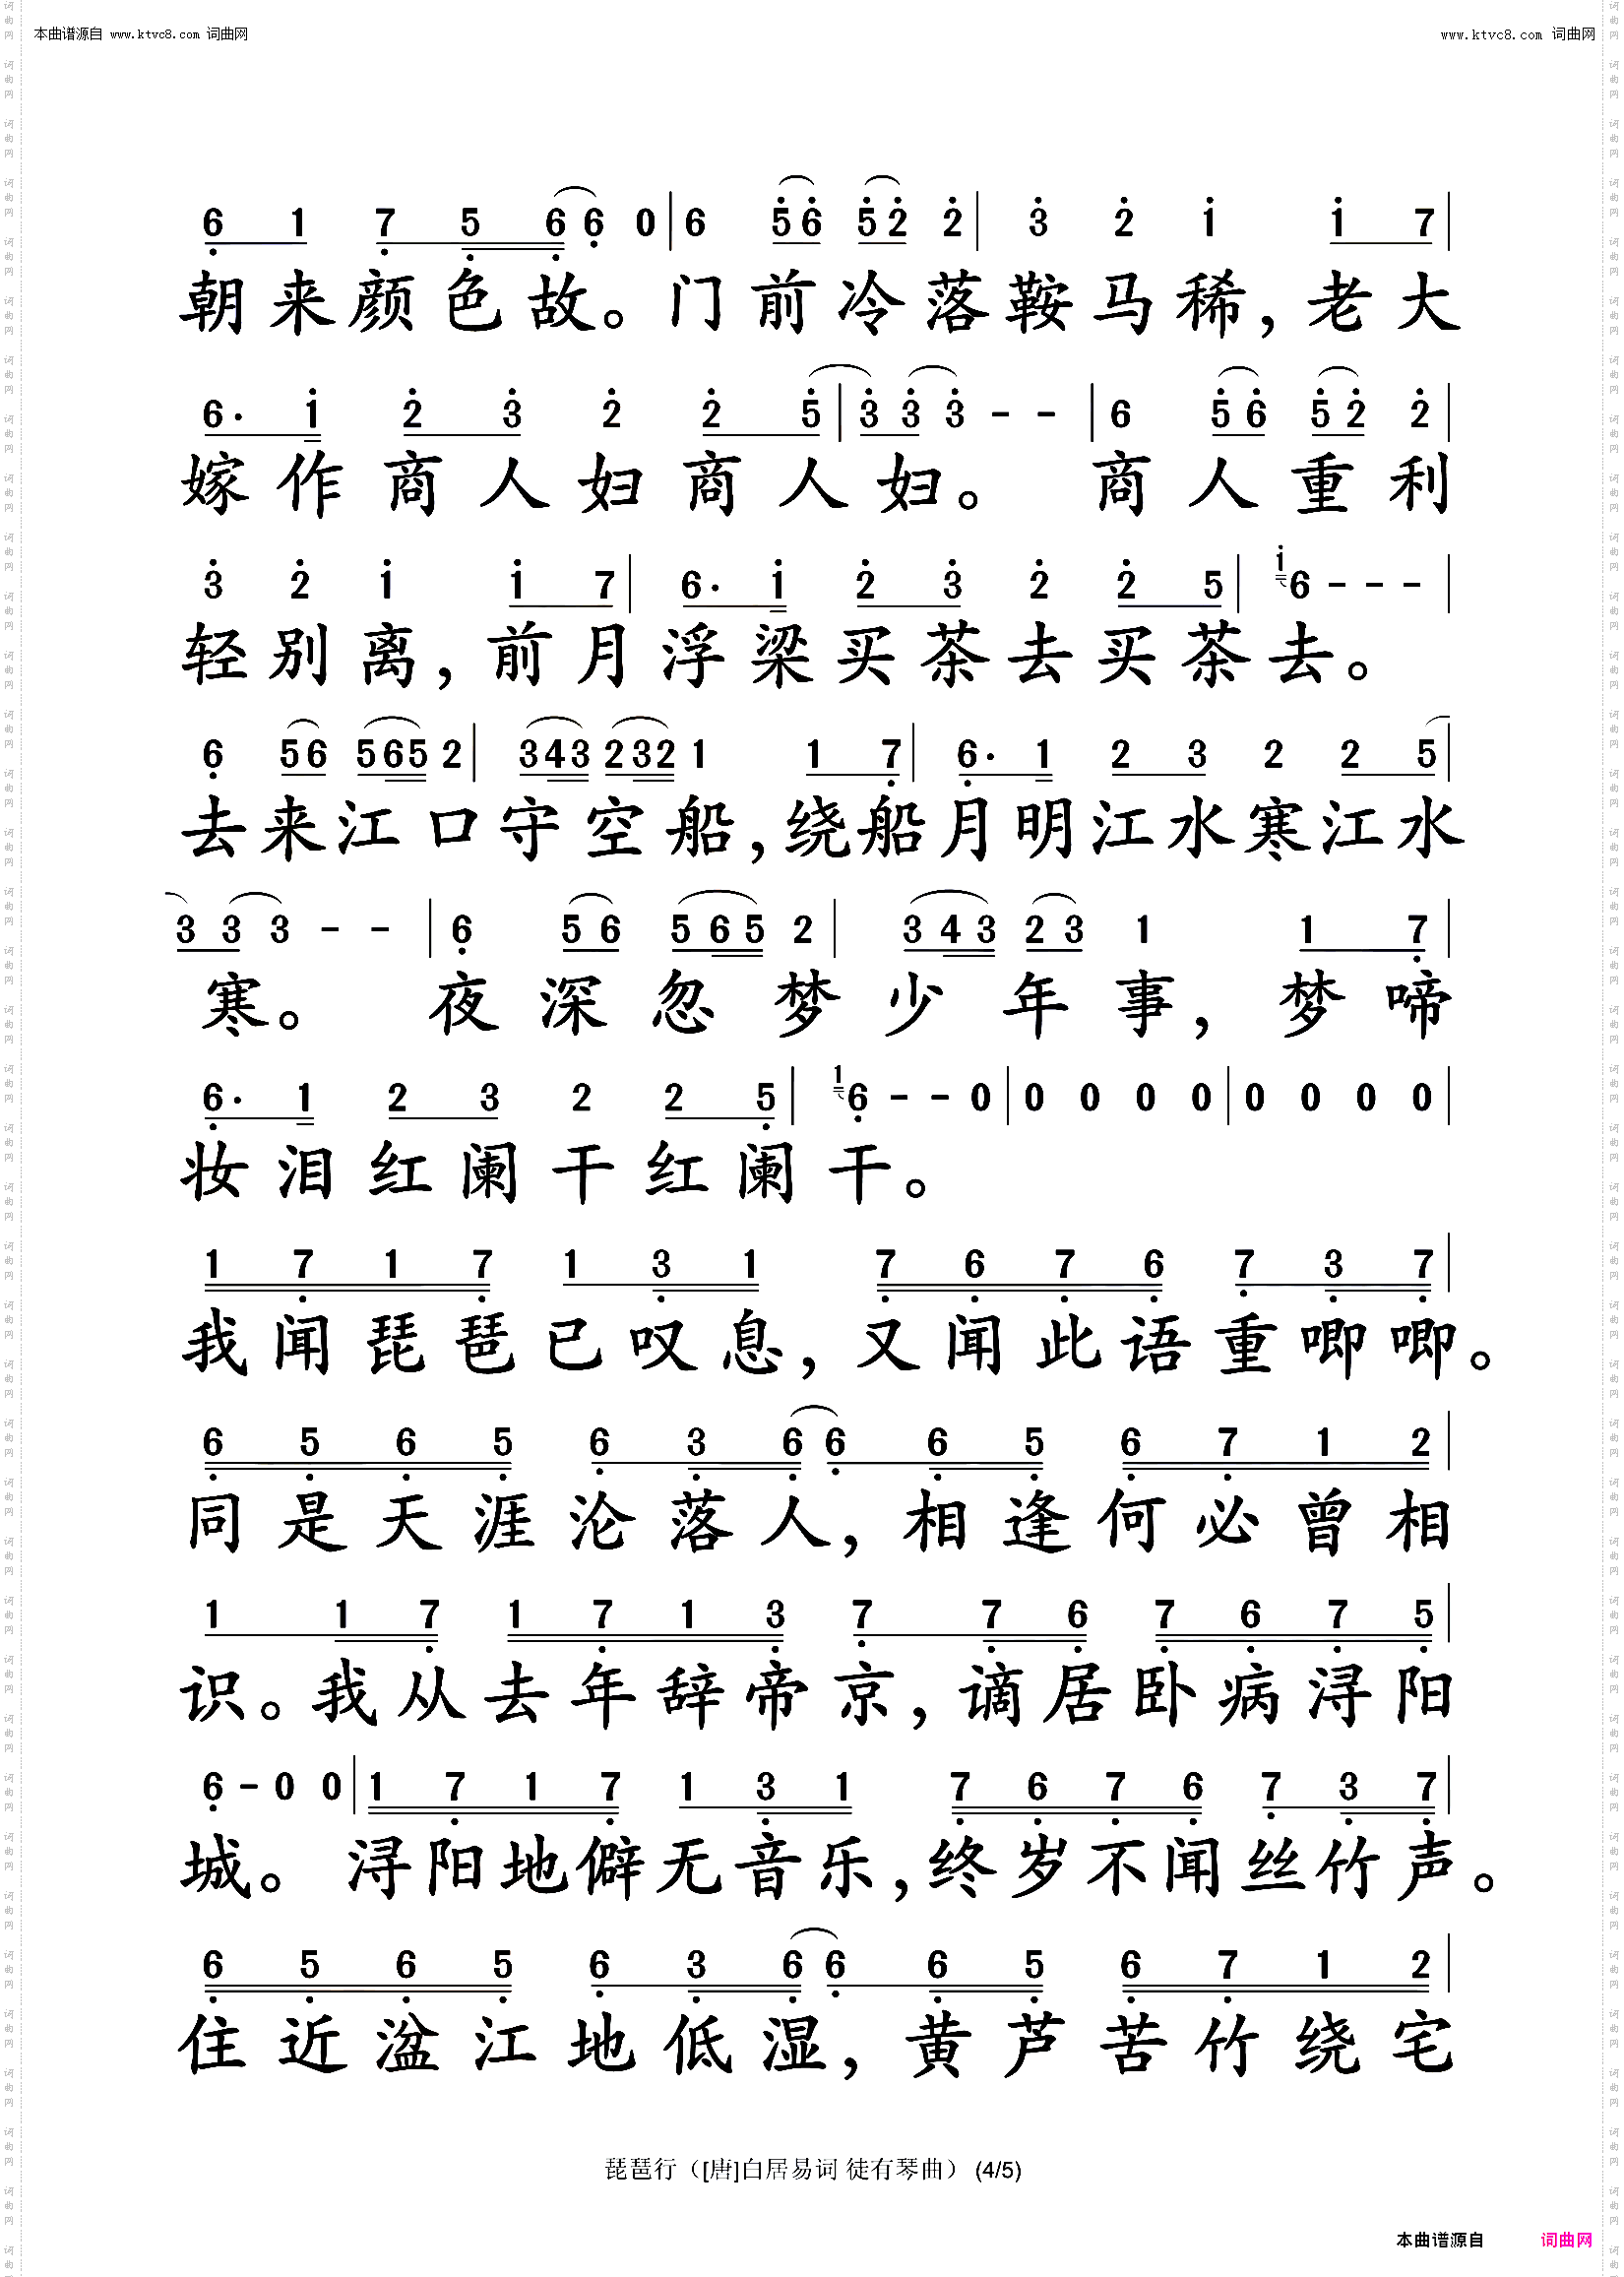 本曲谱源自 www.ktvc8.com 词曲网
www.ktvc8.com 词曲网
6 1 7 5 6 6 0 | 6 5 6 5 2 2 | 3 2 1 1 7 |
朝来颜色故。门前冷落鞍马稀，老大
6· 1 2 3 2 2 5 | 3 3 3 - - | 6 5 6 5 2 2 |
嫁作商人妇商人妇。 商人重利
3 2 1 1 7 | 6· 1 2 3 2 2 5 | 1 6 - - - |
轻别离，前月浮梁买茶去买茶去。
6 5 6 5 6 5 2 | 3 4 3 2 3 2 1 1 7 | 6· 1 2 3 2 2 5 |
去来江口守空船，绕船月明江水寒江水
3 3 3 - - | 6 5 6 5 6 5 2 | 3 4 3 2 3 1 1 7 |
寒。 夜深忽梦少年事，梦啼
6· 1 2 3 2 2 5 | 1 6 - - 0 | 0 0 0 0 | 0 0 0 0 |
妆泪红阑干红阑干。
1 7 1 7 1 3 1 7 6 7 6 7 3 7 |
我闻琵琶已叹息，又闻此语重唧唧。
6 5 6 5 6 3 6 6 6 5 6 7 1 2 |
同是天涯沦落人，相逢何必曾相
1 1 7 1 7 1 3 7 7 6 7 6 7 5 |
识。我从去年辞帝京，谪居卧病浔阳
6 - 0 0 | 1 7 1 7 1 3 1 7 6 7 6 7 3 7 |
城。 浔阳地僻无音乐，终岁不闻丝竹声。
6 5 6 5 6 3 6 6 6 5 6 7 1 2 |
住近湓江地低湿，黄芦苦竹绕宅
琵琶行（[唐]白居易词 徒有琴曲） (4/5)
本曲谱源自 词曲网